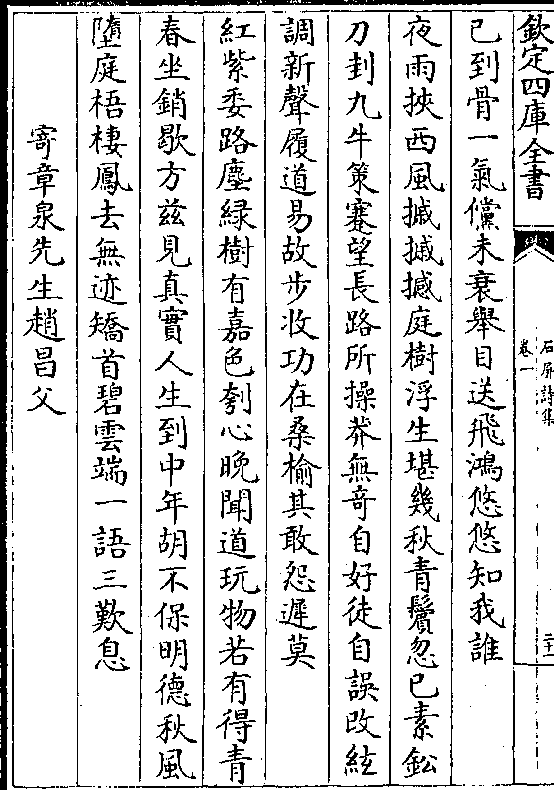 欽定四庫全書
石屏詩集
卷一
二十
已到骨一氣儻未衰舉目送飛鴻悠悠知我誰
夜雨挾西風撼撼撼庭樹浮生堪幾秋青鬢忽已素鉛
刀刲九牛策蹇望長路所操莽無奇自好徒自誤改絃
調新聲履道易故步收功在桑榆其敢怨遲莫
紅紫委路塵緑樹有嘉色刳心晚聞道玩物若有得青
春坐銷歇方兹見真實人生到中年胡不保明德秋風
墮庭梧棲鳳去無迹矯首碧雲端一語三歎息
寄章泉先生趙昌父